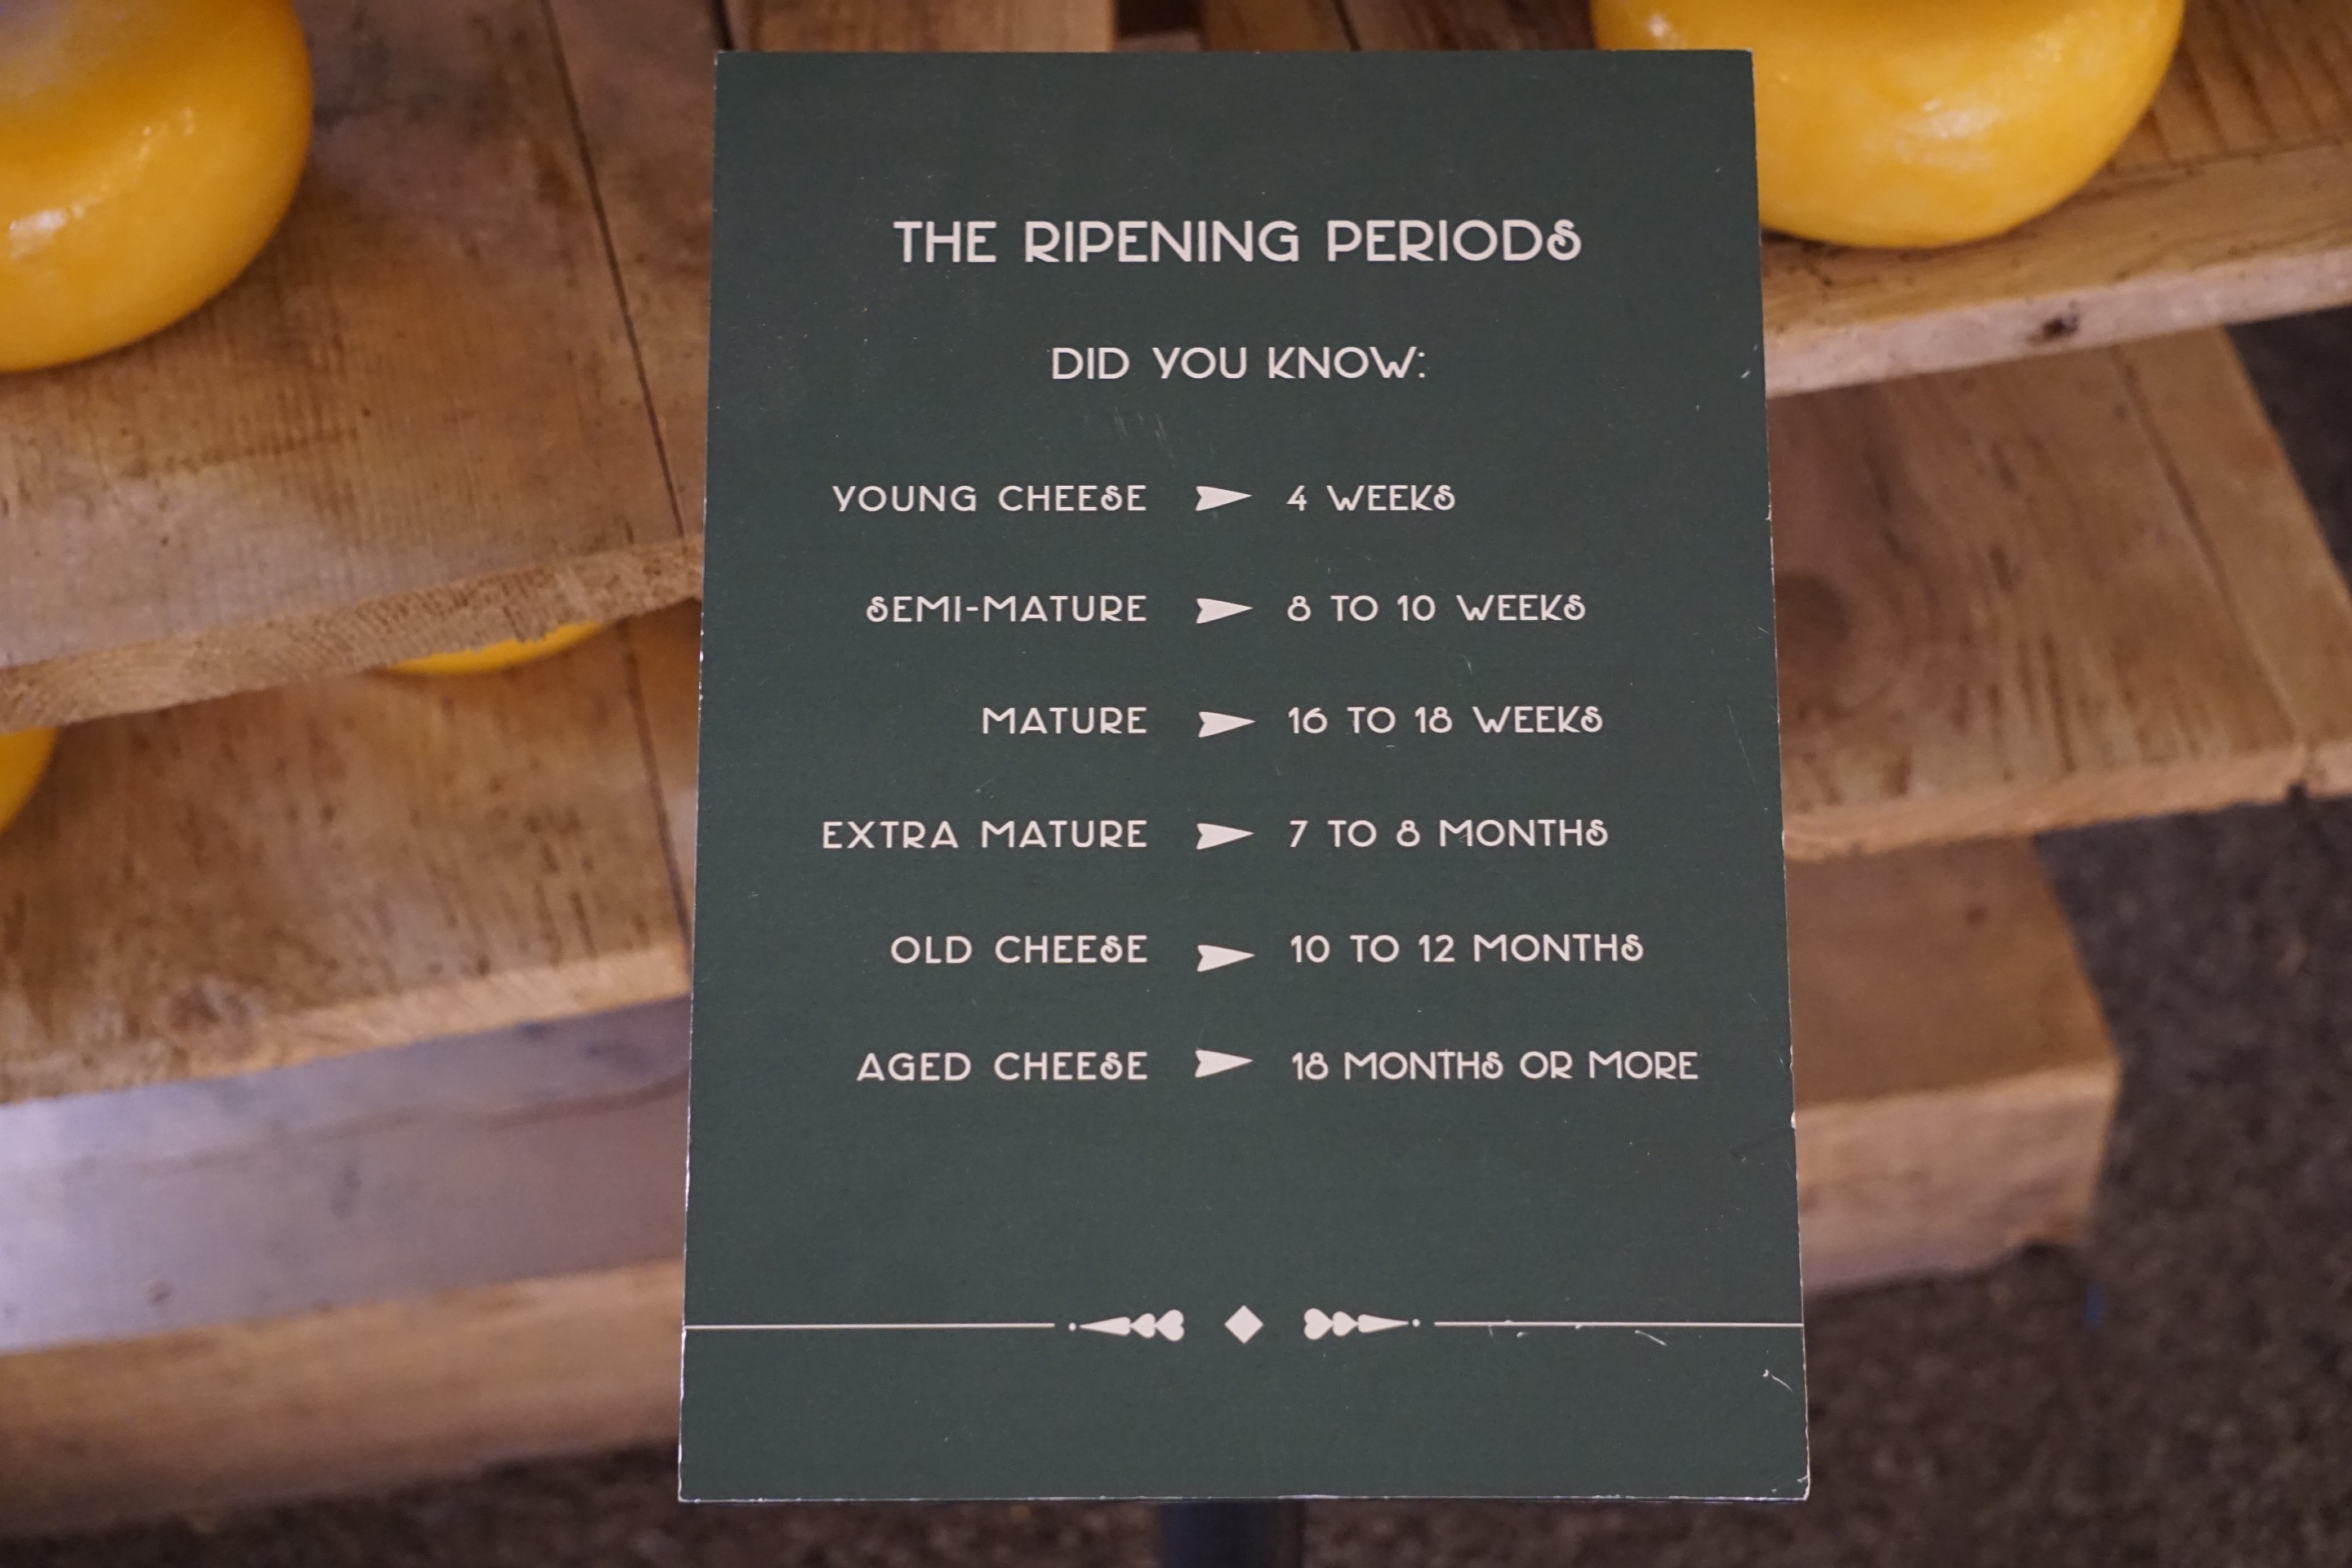 THE RIPENING PERIODS
DID YOU KNOW:
YOUNG CHEESE 4 WEEKS
SEMI-MATURE 8 TO 10 WEEKS
MATURE 16 TO 18 WEEKS
EXTRA MATURE 7 TO 8 MONTHS
OLD CHEESE 10 TO 12 MONTHS
AGED CHEESE 18 MONTHS OR MORE